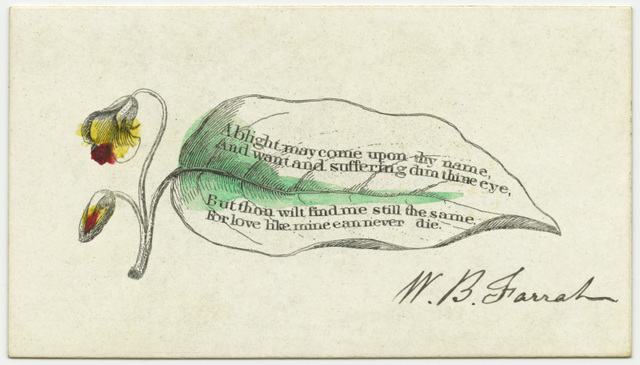 A blight may come upon thy name,
And want and suffering dim thine eye,
But thou wilt find me still the same
For love like mine can never die.
W. B. Farrah